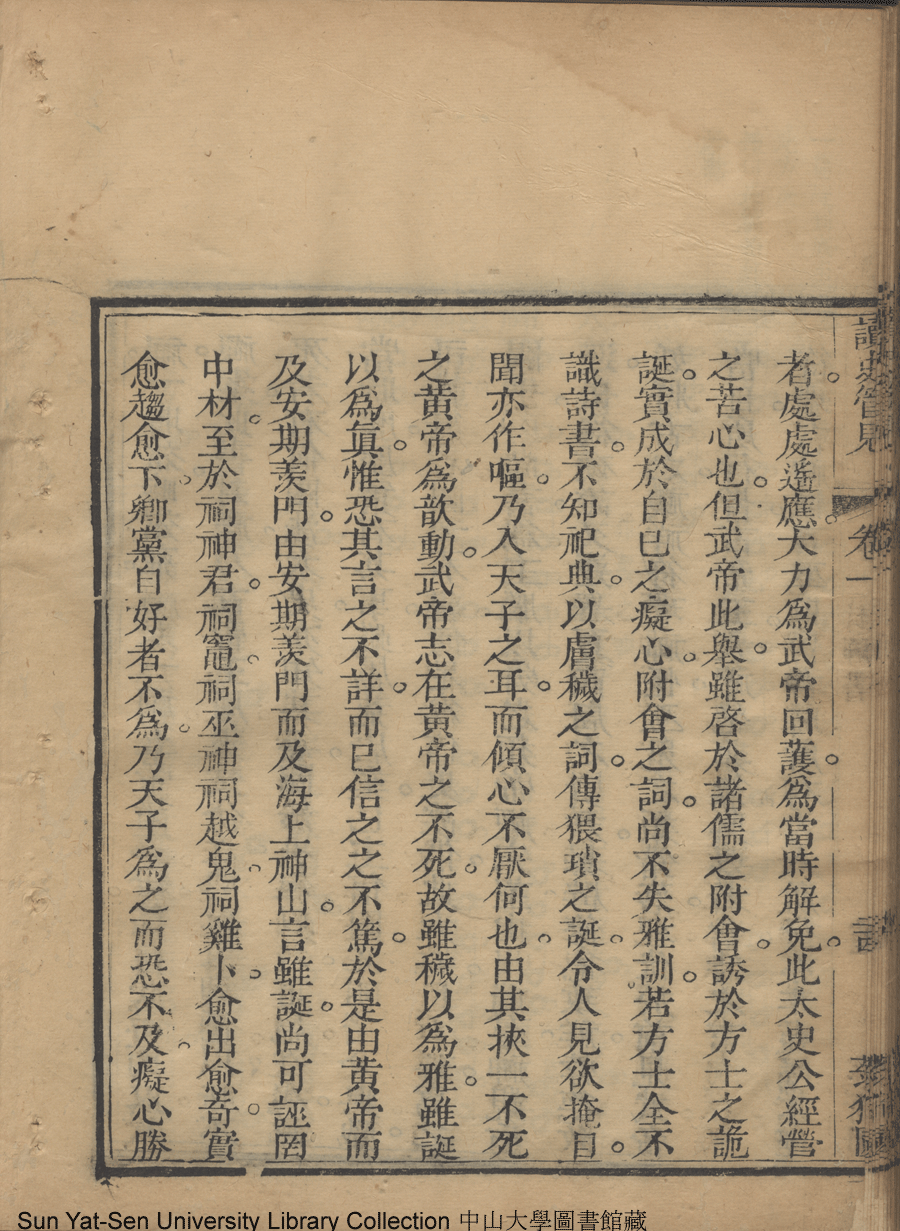 讀史管見 卷一
者處處遙應大力爲武帝回護爲當時解免此太史公經營
之苦心也但武帝此舉雖啓於諸儒之附會誘於方士之詭
誕實成於自已之癡心附會之詞尚不失雅訓若方士全不
識詩書不知祀典以膚穢之詞傳猥瑣之誕令人見欲掩目
聞亦作嘔乃入天子之耳而傾心不厭何也由其挾一不死
之黃帝爲歆動武帝志在黃帝之不死故雖穢以爲雅雖誕
以爲眞惟恐其言之不詳而已信之之不篤於是由黃帝而
及安期羨門由安期羨門而及海上神山言雖誕尚可誣罔
中材至於祠神君祠竈祠巫神祠越鬼祠雞卜愈出愈奇實
愈趨愈下鄉黨自好者不爲乃天子爲之而恐不及癡心勝
Sun Yat-Sen University Library Collection 中山大學圖書館藏